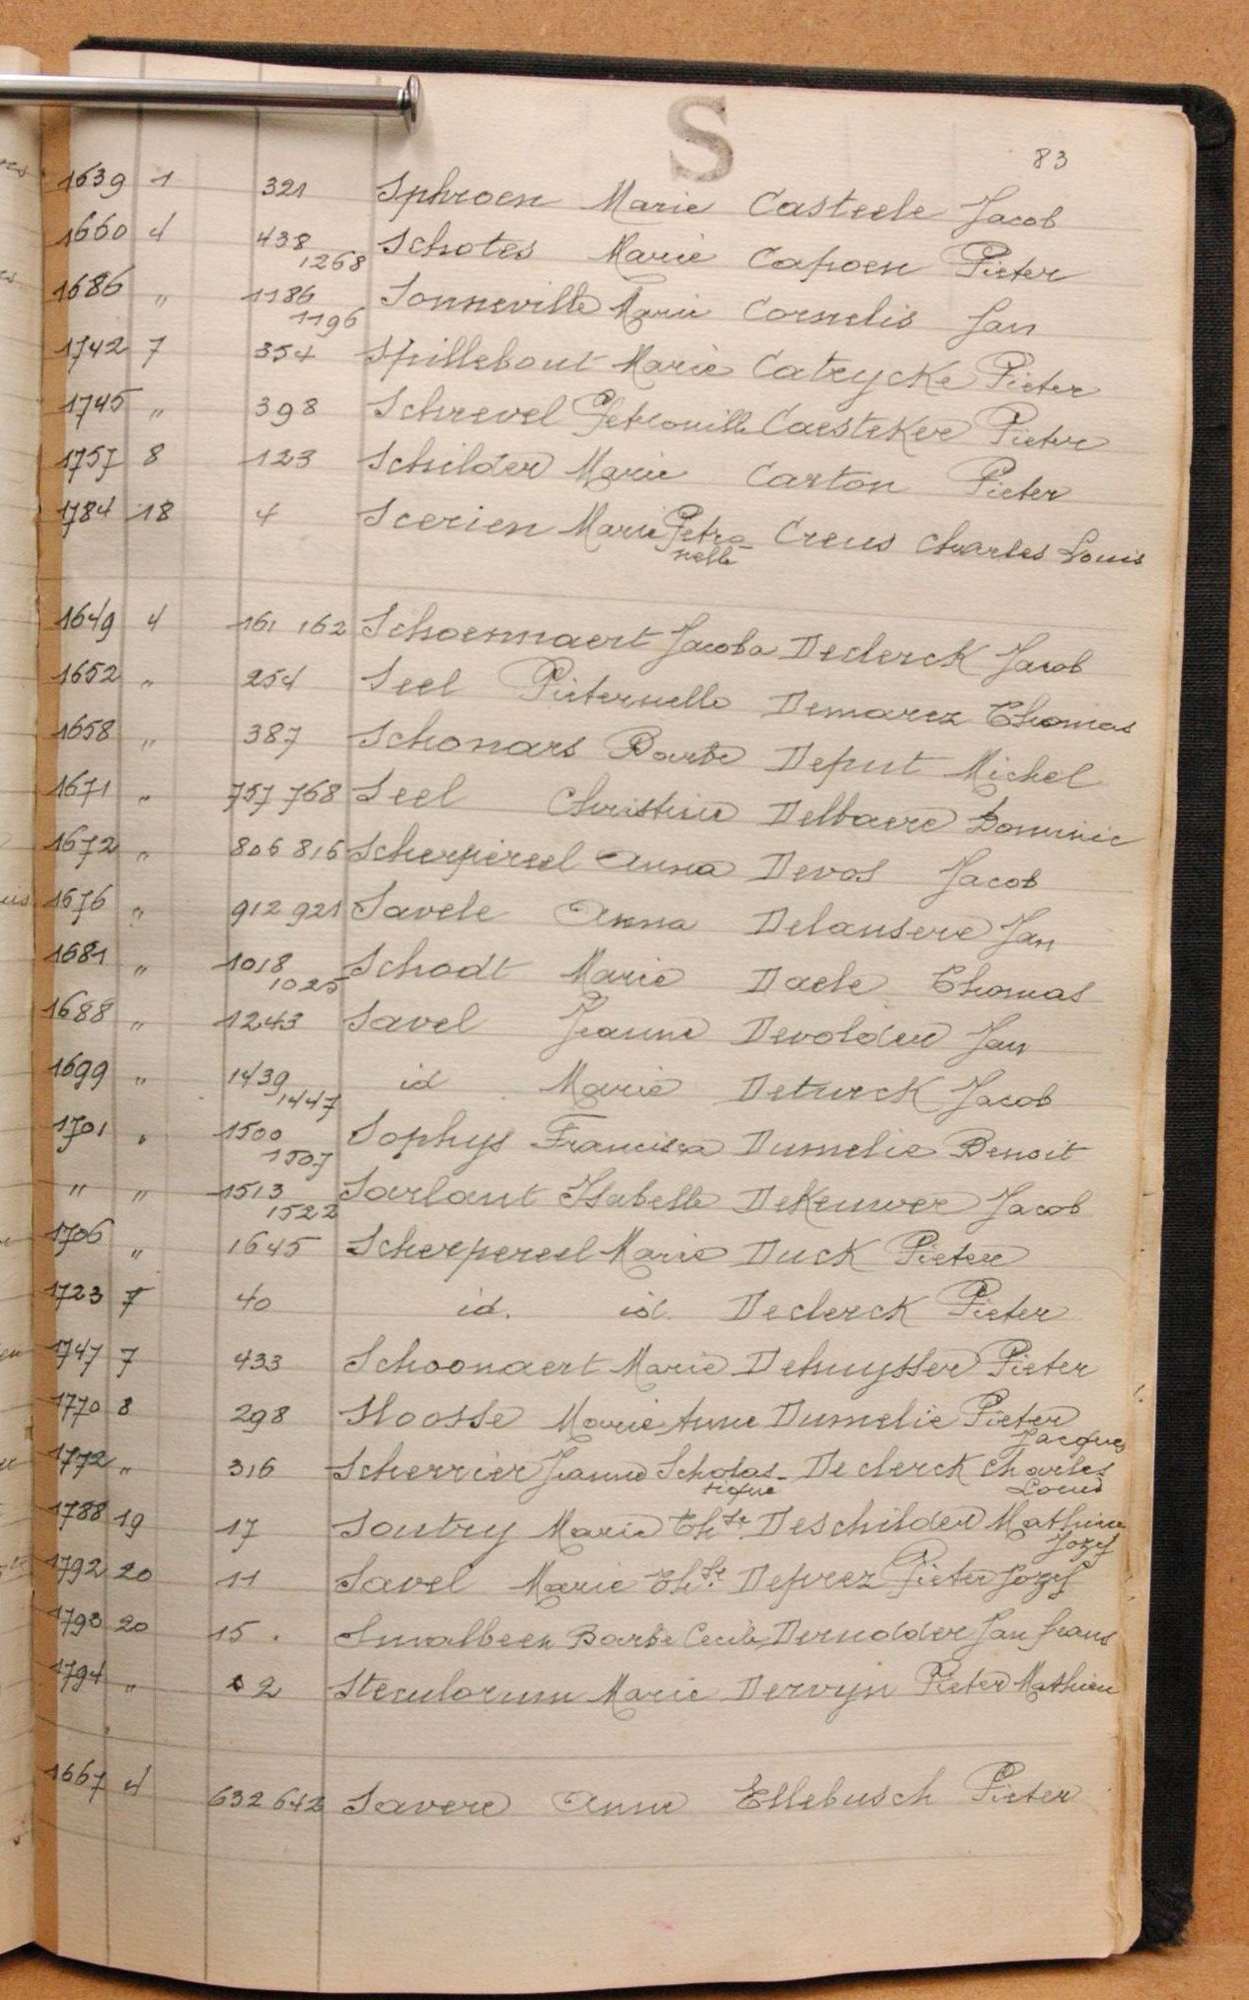 S
83
1639 1 321 Sphroen Marie Casteele Jacob
1660 4 438 1268 Schotes Marie Capoen Pieter
1686 " 1186 1196 Sonneville Marie Cornelis Jan
1742 7 354 Spillebout Marie Catrycke Pieter
1745 " 398 Schrevel Petronille Caesteker Pieter
1757 8 123 Schilder Marie Carton Pieter
1784 18 4 Scerien Marie Petro-nelle Creus Charles Louis
1649 4 161 162 Schoennaert Jacoba Declerck Jacob
1652 " 254 Seel Pieternelle Demarez Thomas
1658 " 387 Schonars Barbe Deput Michel
1671 " 757 768 Seel Christine Delbaere Dominic
1672 " 806 816 Scherpereel Anna Devos Jacob
1676 " 912 921 Savele Anna Delansere Jan
1681 " 1018 1025 Schodt Marie Daele Thomas
1688 " 1243 Savel Jeanne Devolder Jan
1699 " 1439 1447 id Marie Deturck Jacob
1701 " 1500 1507 Sophys Francisca Dumelie Benoit
" " 1513 1522 Sarlaut Isabelle DeKeuwer Jacob
1706 " 1645 Scherpereel Marie Duck Pieter
1723 7 40 id. id. Declerck Pieter
1747 7 433 Schoonaert Marie Dehuysser Pieter
1770 8 298 Sloosse Marie Anne Dumelie Pieter Jacques
1772 " 316 Scherrier Jeanne Scholas-tique Declerck Charles Louis
1788 19 17 Soutry Marie Thse Deschilder Mathieu Jozef
1792 20 11 Savel Marie Thse Deprez Pieter Jozef
1793 20 15. Smalbeen Barbe Cecile Dernolder Jan Frans
1794 " 2 Steculorum Marie Dervyn Pieter Mathieu
1667 4 632 642 Savere Anne Ellebusch Pieter